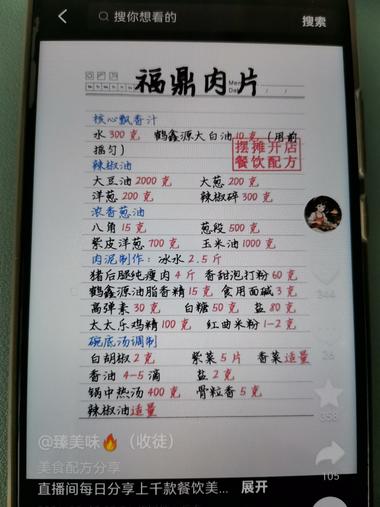 搜你想看的 搜索
福鼎肉片
核心飘香汁
水 300 克 鹤鑫源大白油 10 克 (用前
摇匀)
摆摊开店
餐饮配方
辣椒油
大豆油 2000 克 大葱 200 克
洋葱 200 克 辣椒碎 300 克
浓香葱油
八角 15 克 葱段 500 克
紫皮洋葱 700 克 玉米油 1000 克
肉泥制作: 冰水 2.5 斤
猪后腿纯瘦肉 4 斤 香甜泡打粉 60 克
鹤鑫源油脂香精 15 克 食用面碱 3 克
高弹素 30 克 白糖 50 克 盐 80 克
太太乐鸡精 100 克 红曲米粉 1-2 克
碗底汤调制
白胡椒 2 克 紫菜 5 片 香菜适量
香油 4-5 滴 盐 2 克
锅中热汤 400 克 骨粒香 5 克
辣椒油适量
344
26
358
105
@臻美味🔥(收徒)
美食配方分享
直播间每日分享上千款餐饮美... 展开